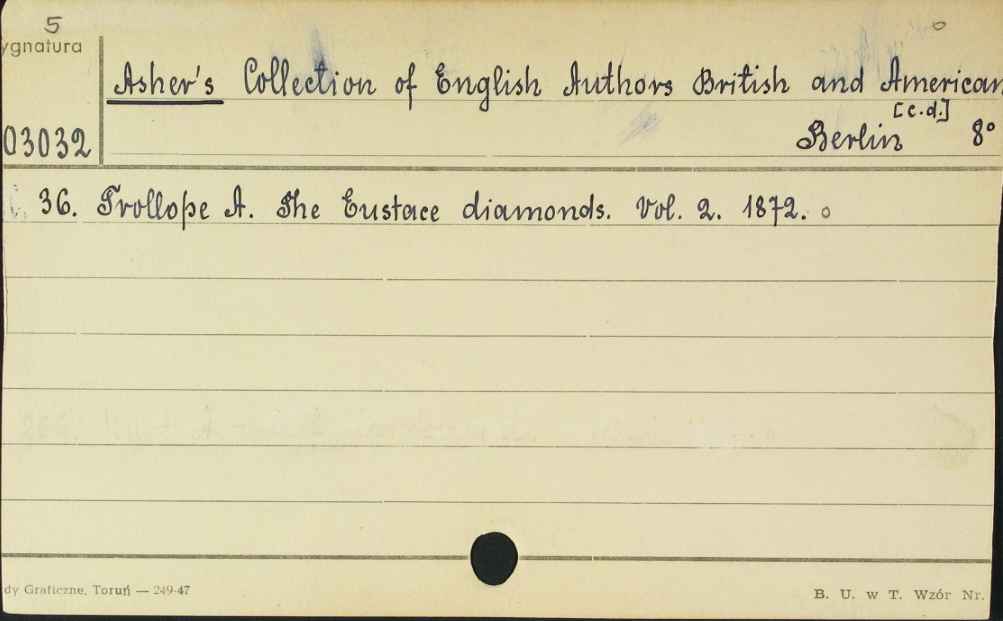 5
ygnatura
Asher's Collection of English Authors British and American
[c.d.]
03032 Berlin 8°
36. Trollope A. The Eustace diamonds. Vol. 2. 1872.
dy Graficzne, Toruń — 249-47
B. U. w T. Wzór Nr.